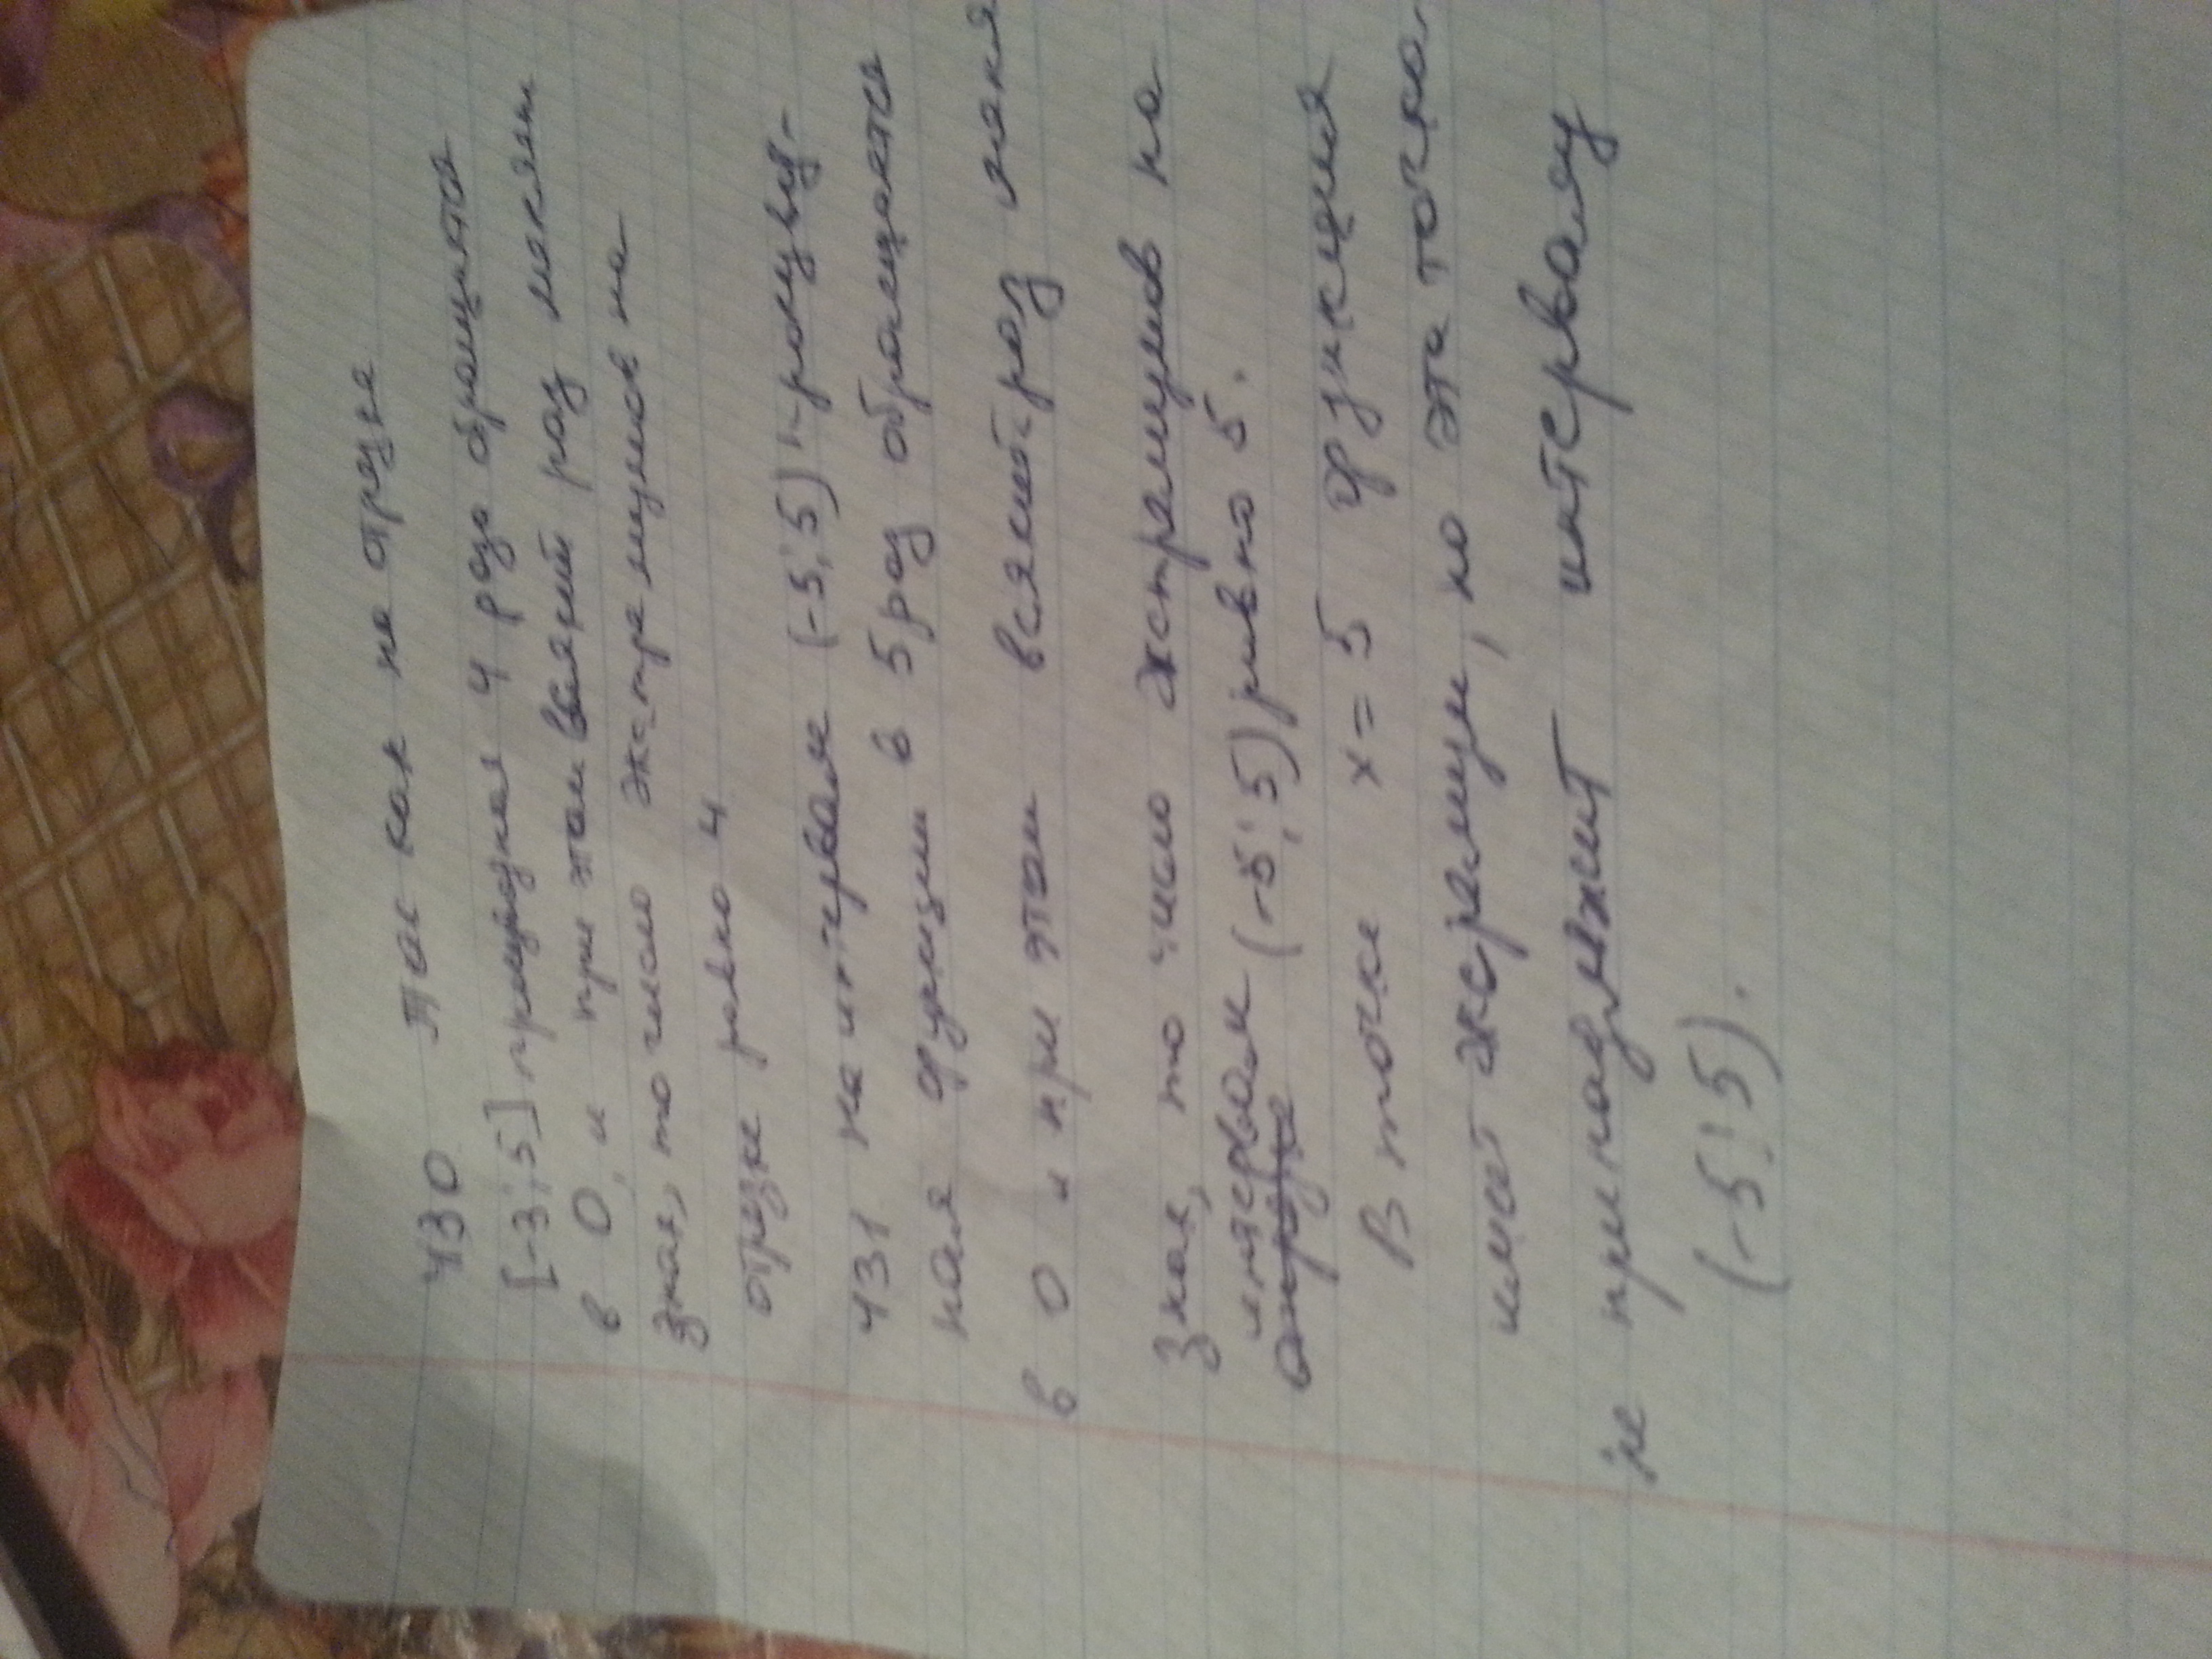 430 Так как на отрезке
[-3; 5] производная 4 раза обращается
в 0, и при этом всякий раз меняет
знак, то число экстремумов на
отрезке равно 4
431 на интервале (-5; 5) производ-
ная функции в 5 раз обращается
в 0 и при этом всякий раз меняя
знак, то число экстремумов на
интервале (-5; 5) равно 5.
В точке x = 5 функция
имеет экстремум, но эта точка
не принадлежит интервалу
(-5; 5).